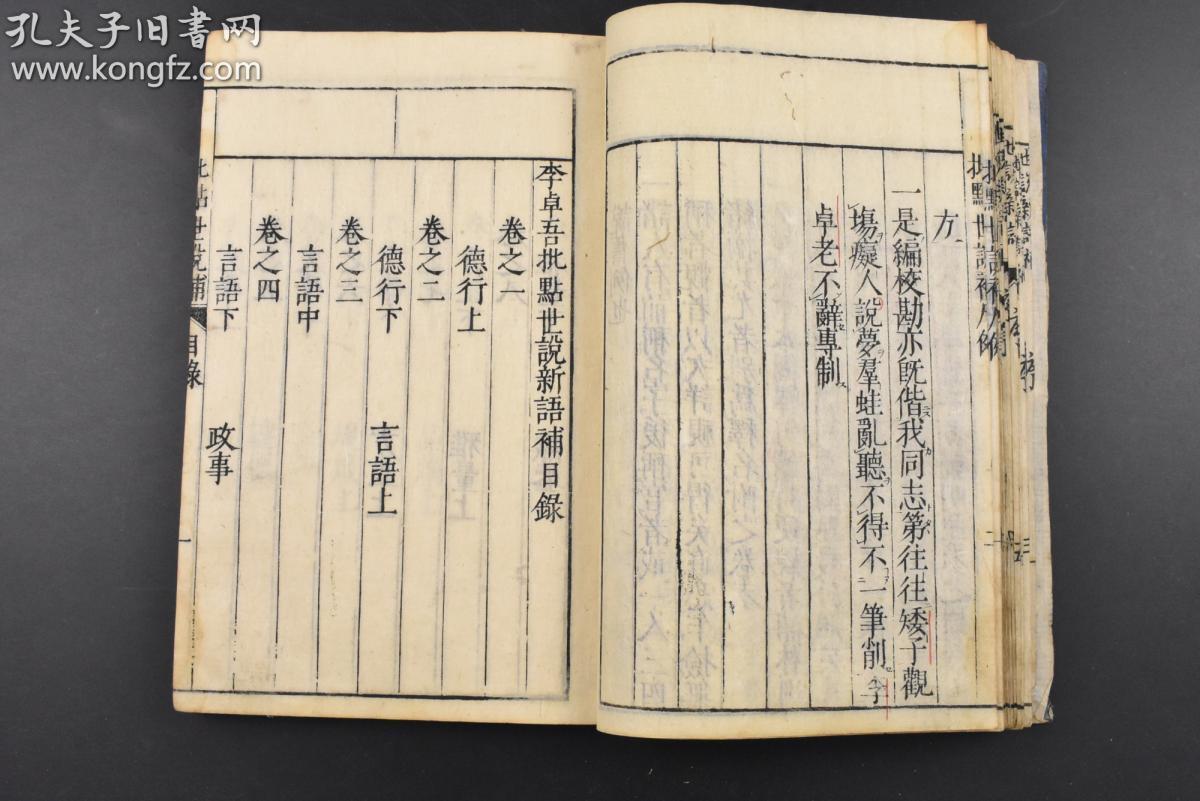 孔夫子旧书网
www.kongfz.com
方
一是編校勘亦既偕我同志第往往矮子觀
塲癡人說夢羣蛙亂聽不得不一筆削李
卓老不辭專制
李卓吾批點世說新語補目錄
卷之一
德行上
卷之二
德行下 言語上
卷之三
言語中
卷之四
言語下 政事
批點世說補 目錄 一